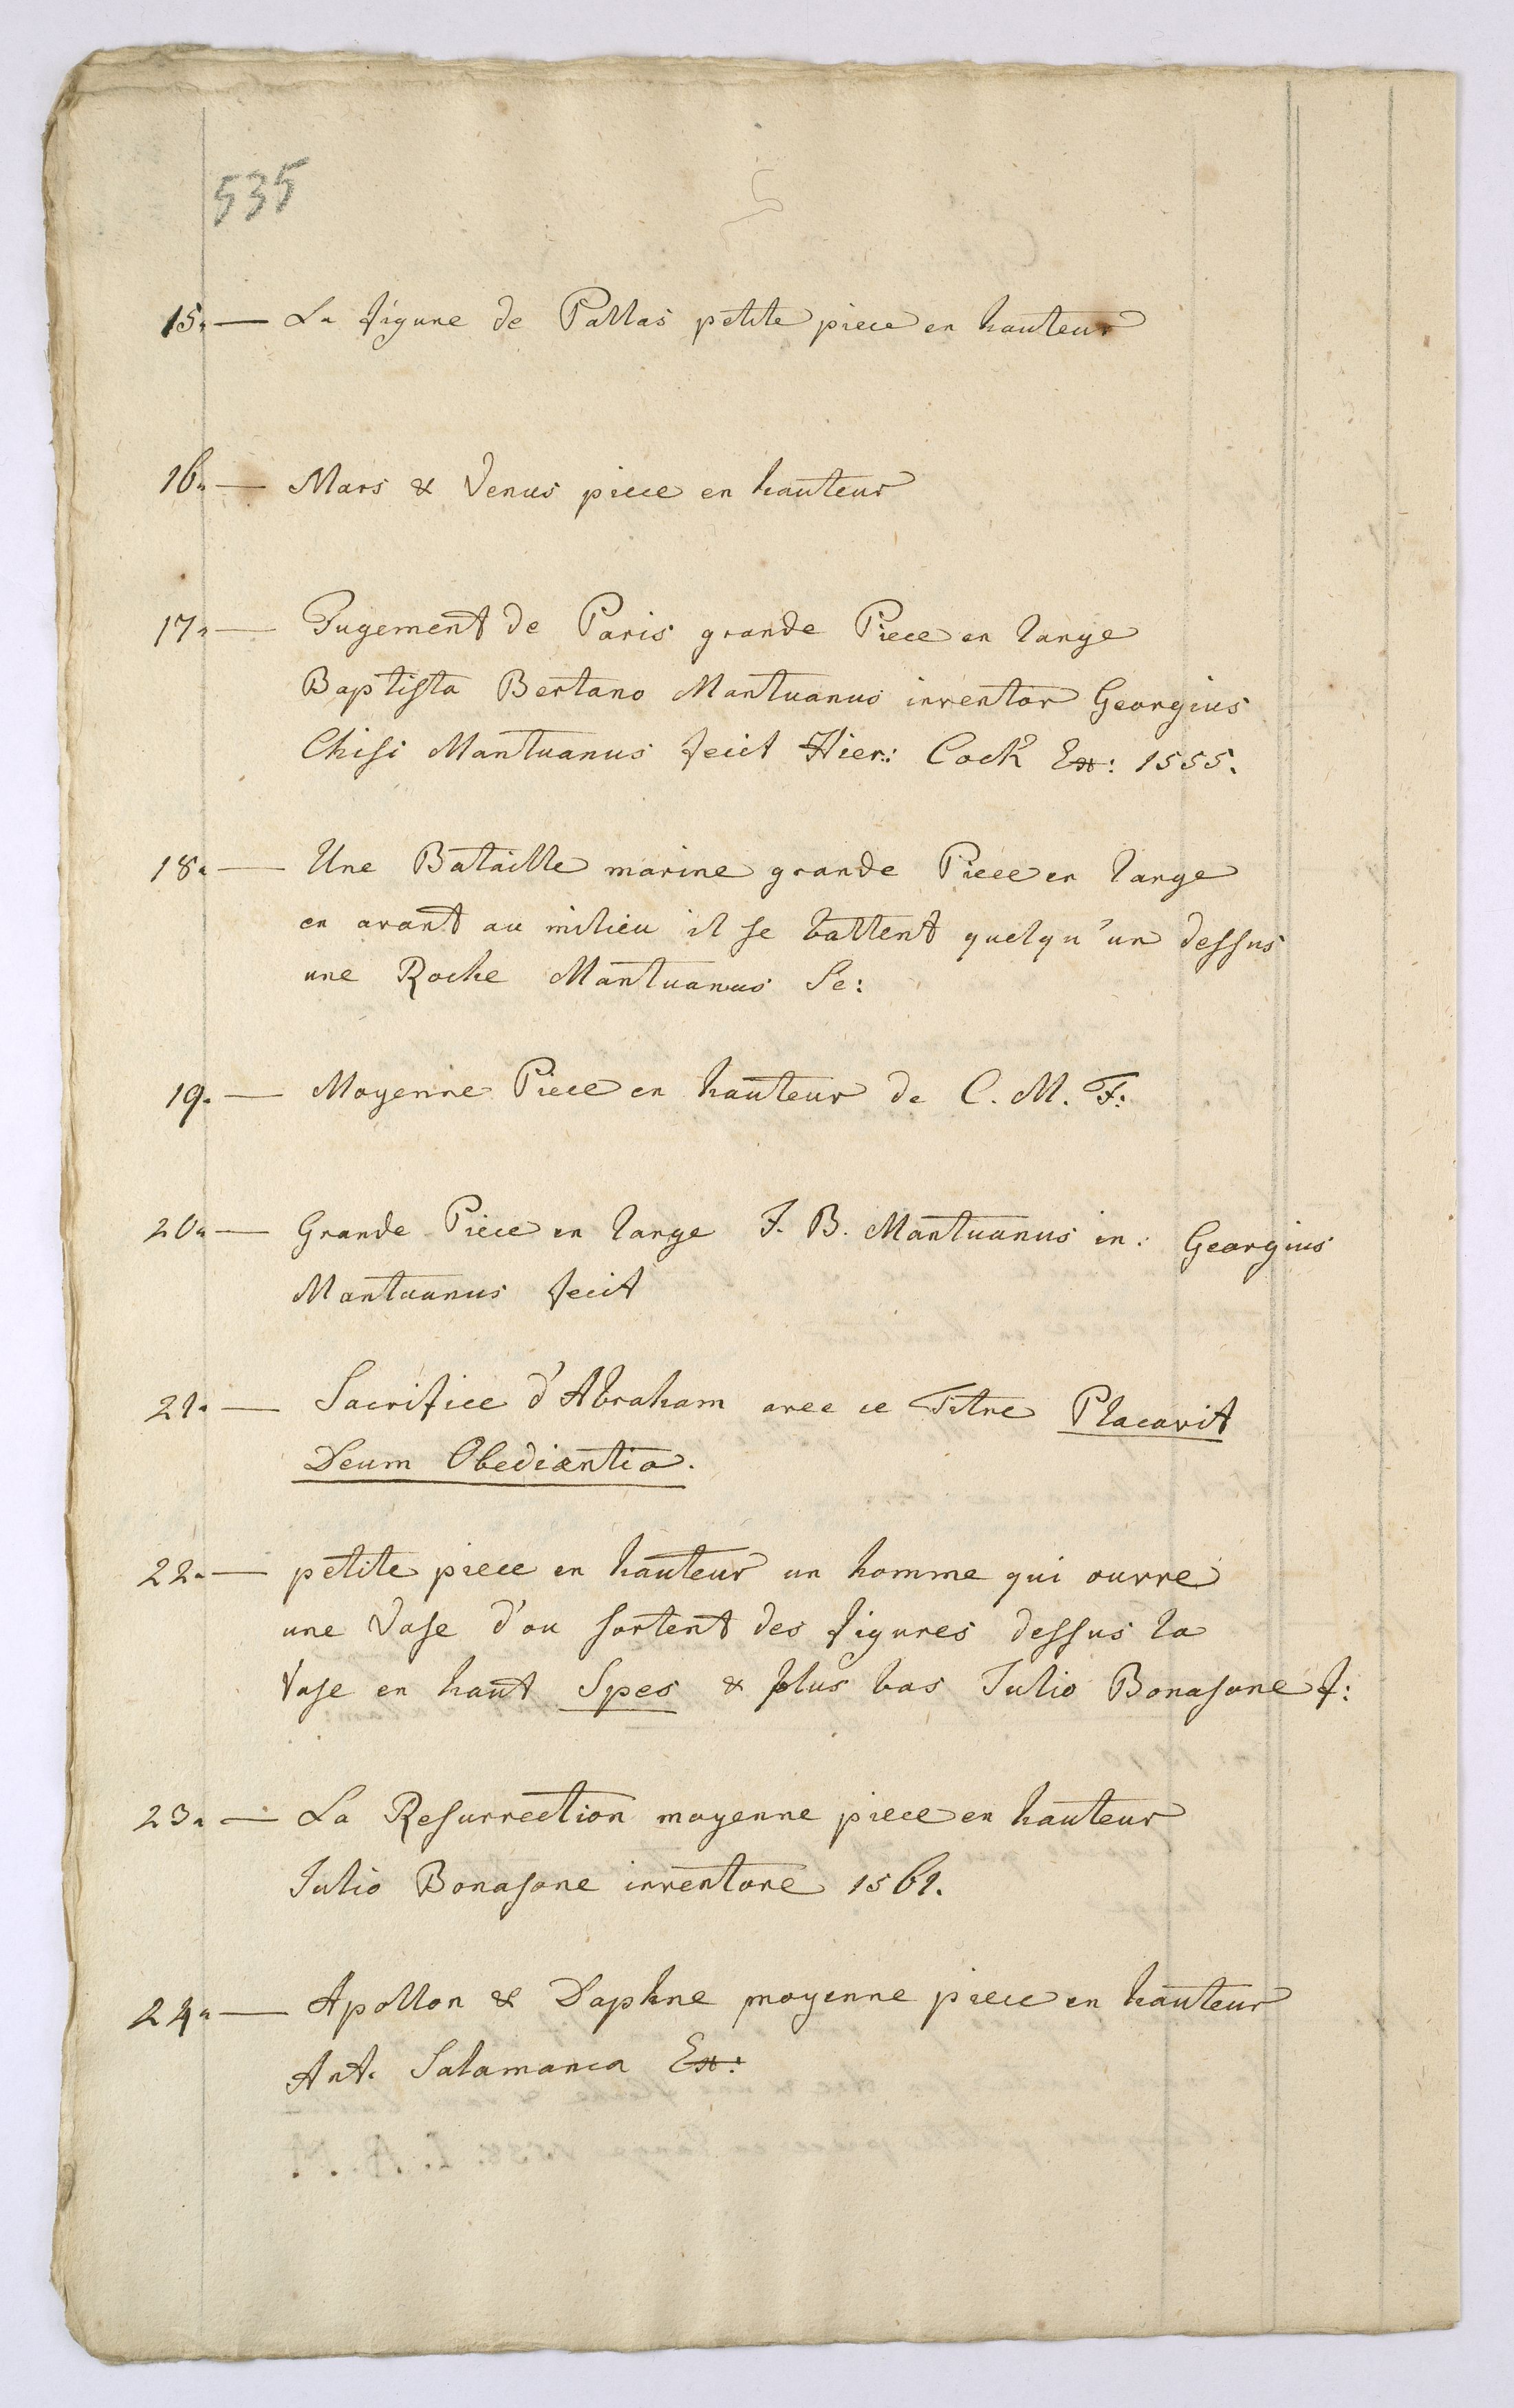 535
15. — La figure de Pallas petite piece en hauteur
16. — Mars & Venus piece en hauteur
17. — Jugement de Paris grande Piece en large
Baptista Bertano Mantuanus inventor Georgius
Chisi Mantuanus fecit Hier: Cock Ex: 1555.
18. — Une Bataille marine grande Piece en large
en avant au milieu il se battent quelqu'un dessus
une Roche Mantuanus Sc:
19. — Moyenne Piece en hauteur de C. M. F.
20. — Grande Piece en large I. B. Mantuanus in: Georgius
Mantuanus fecit
21. — Sacrifice d'Abraham avec ce Titre Placavit
Deum Obediantia.
22. — petite piece en hauteur un homme qui ouvre
une Vase d'ou sortent des figures dessus la
Vase en haut Spes & plus bas Julio Bonasone f:
23. — La Resurrection moyenne piece en hauteur
Julio Bonasone inventore 1561.
24. — Apollon & Daphne moyenne piece en hauteur
Ant. Salamanca Ex: